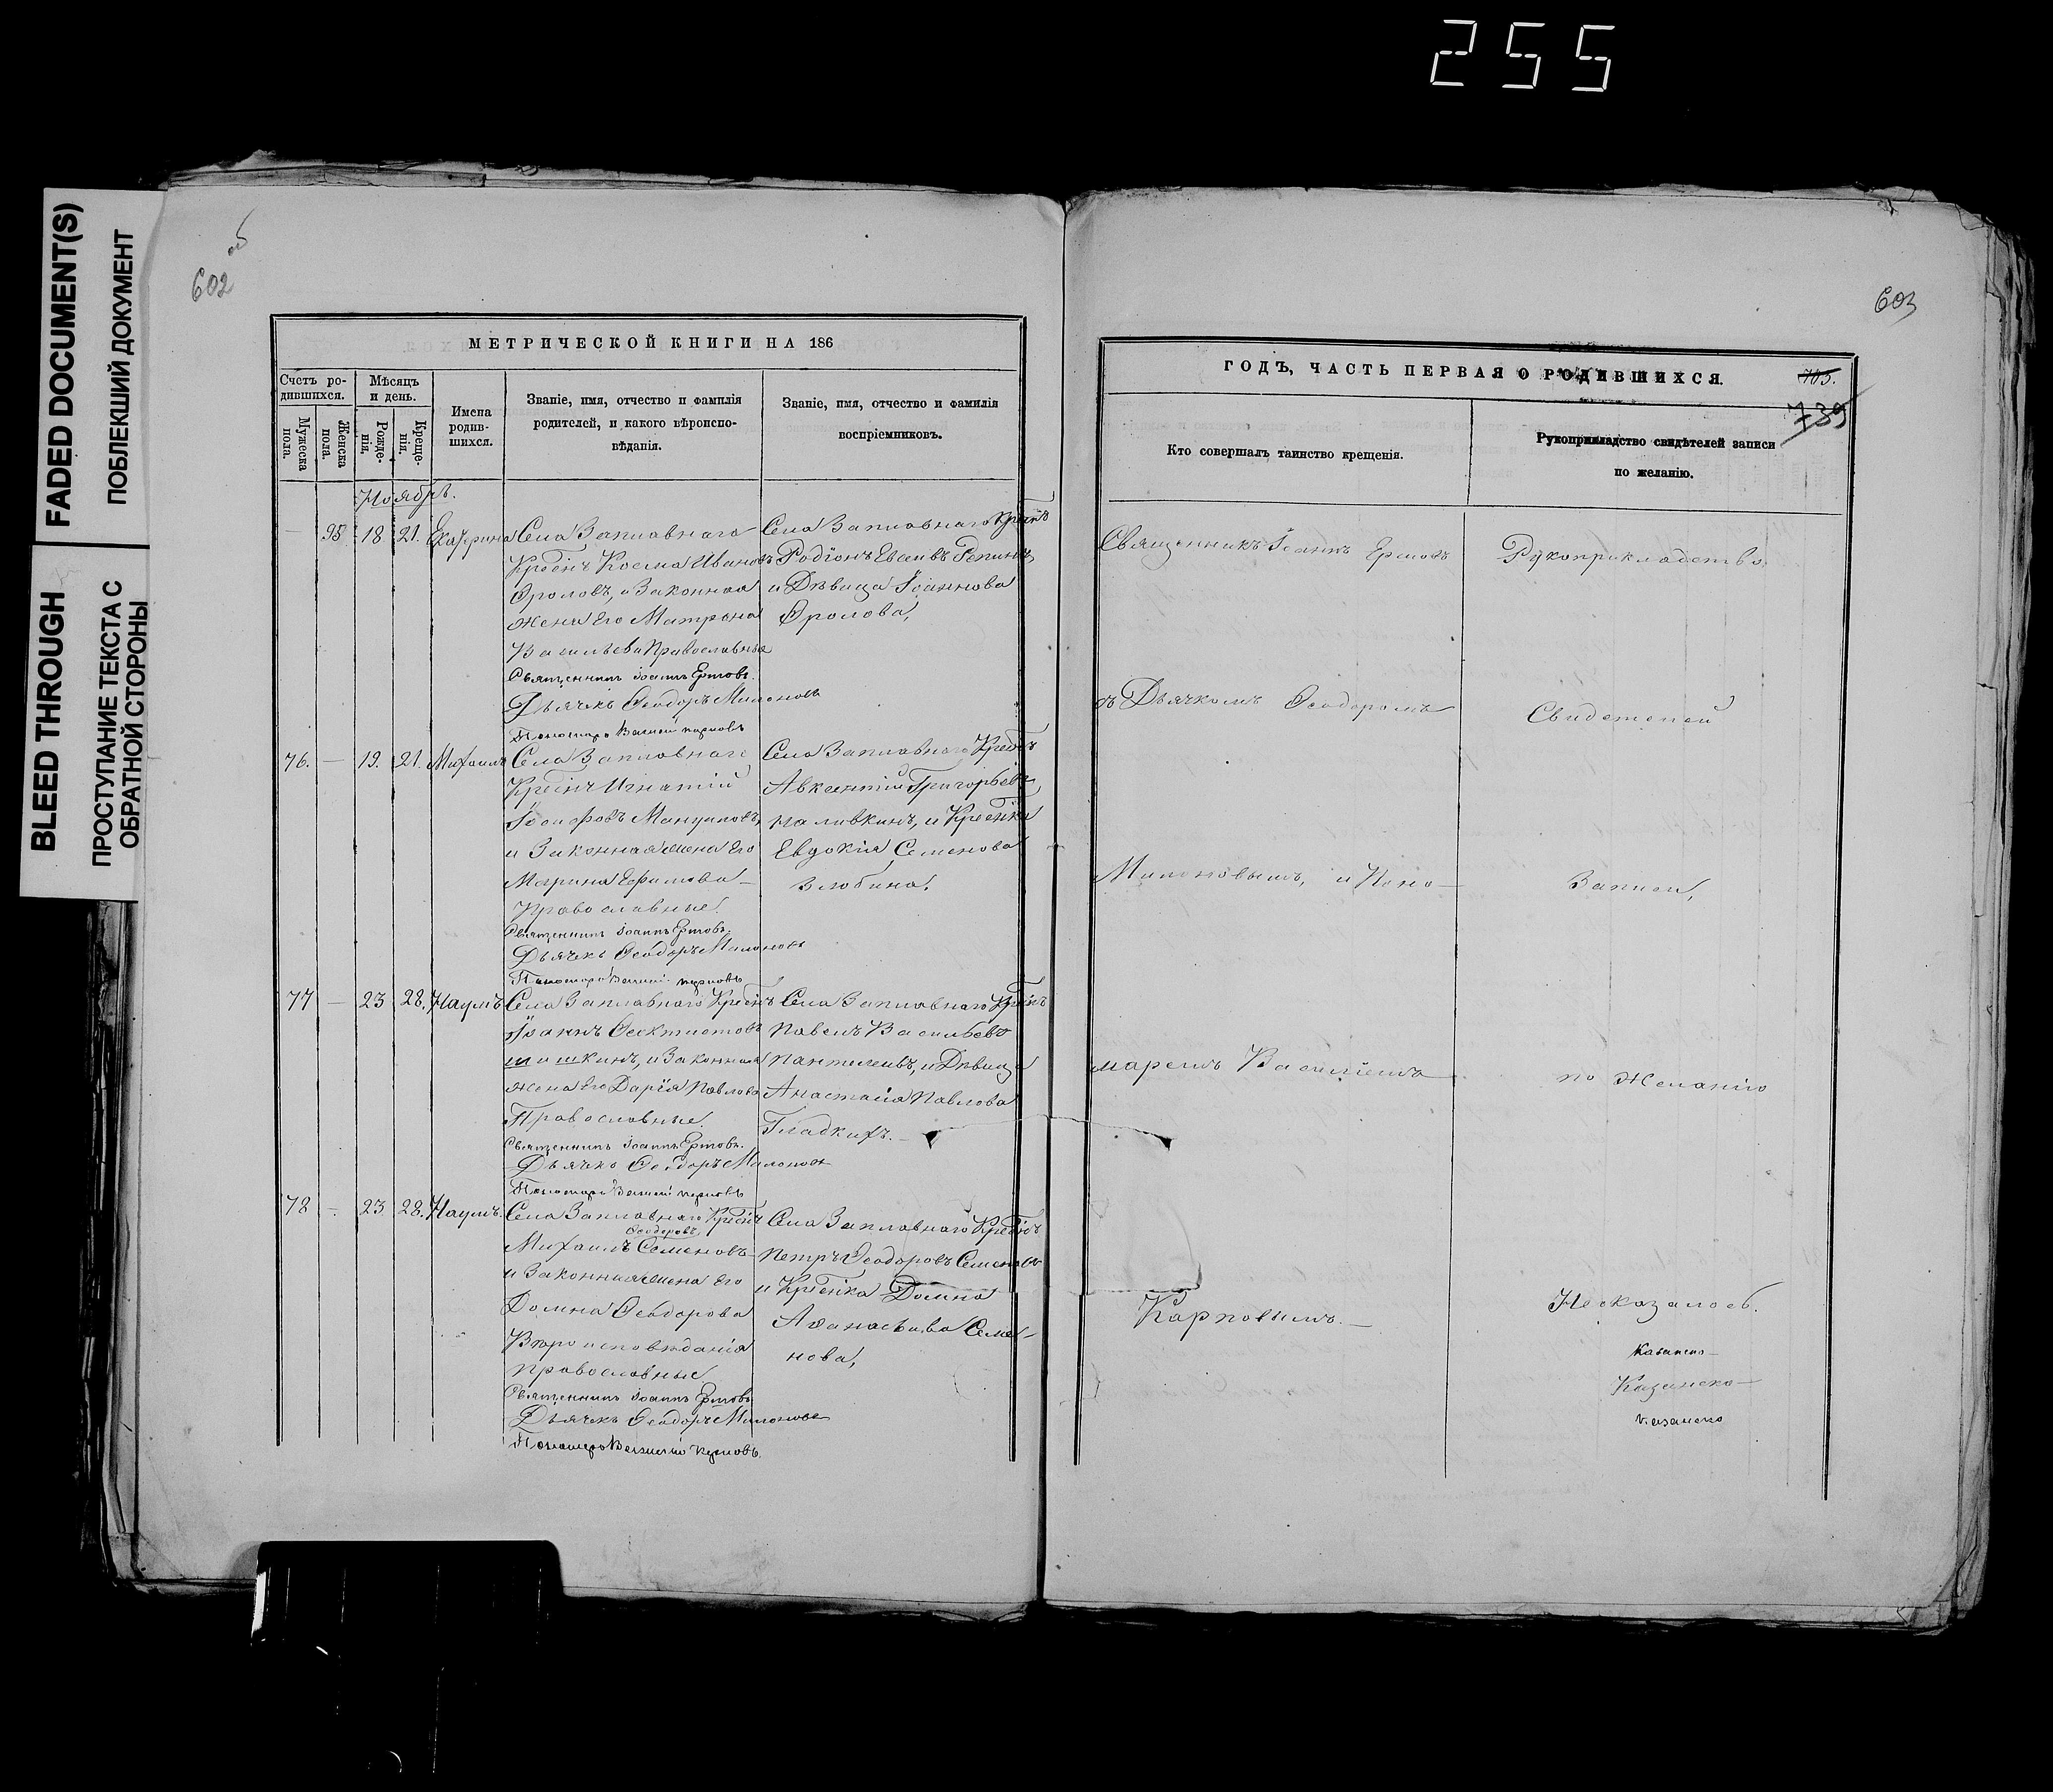 255
FADED DOCUMENT(S)
ПОБЛЕКШИЙ ДОКУМЕНТ
BLEED THROUGH
ПРОСТУПАНИЕ ТЕКСТА С
ОБРАТНОЙ СТОРОНЫ
602
об
МЕТРИЧЕСКОЙ КНИГИ НА 186
Счетъ ро-
дившихся.
Мужеска
пола.
Женска
пола.
Мѣсяцъ
и день.
Рожде-
нія.
Креще-
нія.
Имена
родив-
шихся.
Званіе, имя, отчество и фамилія
родителей, и какого вѣроиспо-
вѣданія.
Званіе, имя, отчество и фамилія
воспріемниковъ.
Ноябрь.
— 98 18 21. Екатрина
Села Заплавнаго
Крестнъ Косма Ивановъ
Ѳроловъ, и Законная
жена Его Матрона
Васильева Православные
Священникъ Іоаннъ Ермовъ.
Дьячекъ Ѳеодоръ Милоновъ
Пономарь Василій Карповъ
Села Заплавнаго Крестнъ
Родіонъ Евсеивъ Репинъ
и Дѣвица Іоаннова
Ѳролова,
76. — 19. 21. Михаилъ
Села Заплавнаго
Крестнъ Игнатій
Іосифовъ
и Законная жена Его
Марина Ефимова
Православные.
Священникъ Іоаннъ Ермовъ.
Дьячекъ Ѳеодоръ Милоновъ
Пономарь Василій Карповъ
Села Заплавнаго Крестнъ
Авксентій Григорьевъ
Наливкинъ, и Крестнка
Евдокія Семенова
Злобина.
77 — 23 28. Наумъ
Села Заплавнаго Крестнъ
Іоаннъ Ѳеоктистовъ
Шишкинъ, и Законная
жена Его Дарія Павлова
Православные.
Священникъ Іоаннъ Ермовъ.
Дьячекъ Ѳеодоръ Милоновъ
Пономарь Василій Карповъ
Села Заплавнаго Крестнъ
Павелъ Васильевъ
Пантелеивъ, и Дѣвица
Анастасія Павлова
Гладкихъ.
78 — 23 28. Наумъ.
Села Заплавнаго Крестнъ
Ѳеодоровъ
Михаилъ Семеновъ
и Законная жена Его
Домна Ѳеодорова
Вѣроисповѣданія
православные
Священникъ Іоаннъ Ермовъ
Дьячекъ Ѳеодоръ Милоновъ
Пономарь Василій Карповъ.
Села Заплавнаго Крестнъ
Петръ Ѳеодоровъ Семеновъ
и Крестнка Домна
Аѳанасьева Семе-
нова,
603
ГОДЪ, ЧАСТЬ ПЕРВАЯ О РОДИВШИХСЯ.
705.
739
Кто совершалъ таинство крещенія.
Рукоприкладство свидѣтелей записи
по желанію.
Священникъ Іоаннъ Ермовъ
съ Дьячкомъ Ѳеодоромъ
Милоновымъ, и Поно-
маремъ Василіемъ
Карповымъ.
Рукоприкладства
Свидетелей
Записи,
по Желанію
Несказалось.
Казанско
Казанско
Казанско